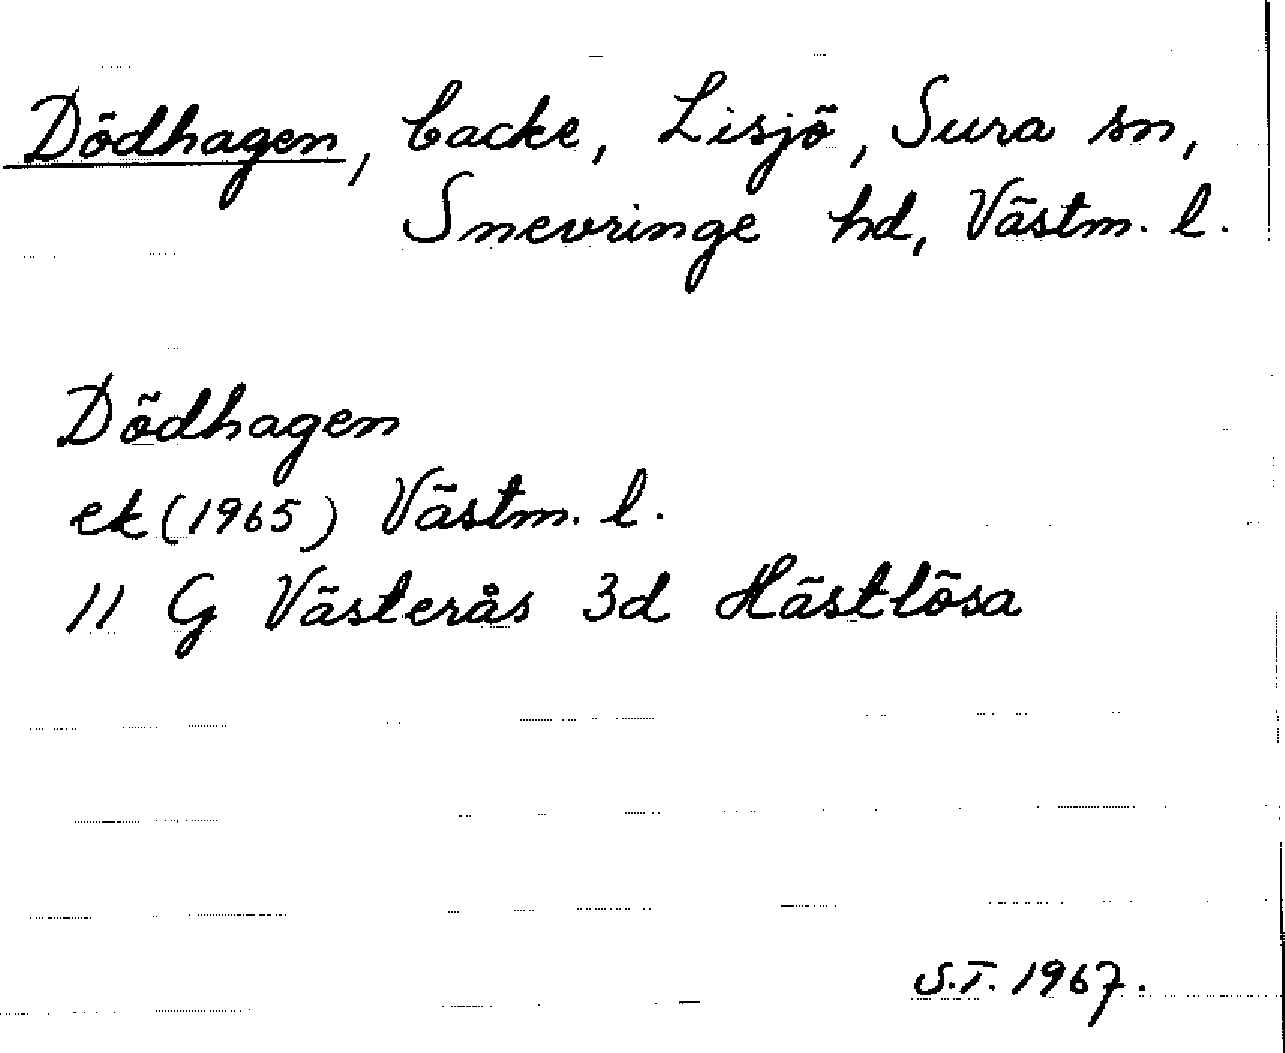 Dödhagen, backe, Lisjö, Sura sn,
Snevringe hd, Västm. l.
Dödhagen
ek (1965) Västm. l.
11 G Västerås 3d Hästlösa
S.T. 1967.